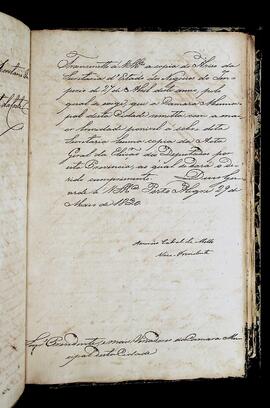 Transmitto á V. Mces a copia do Aviso da
Secretaria d'Estado dos Negocios do Im-
perio de 27 de Abril deste anno, pelo
qual se exige que a Camara Munici-
pal desta Cidade remetta com a ma-
ior brevidade possivel a sobre dita
Secretaria huma copia da Acta
Geral da Eleição dos Deputados por
esta Provincia, ao qual darão o de-
vido cumprimento. Deus Gu-
arde a V. Mces Porto Alegre 29 de
Maio de 1830.
Americo Cabral de Mello
Vice-Presidente
Snrs Presidente, e mais Vereadores da Camara Mu-
nicipal desta Cidade